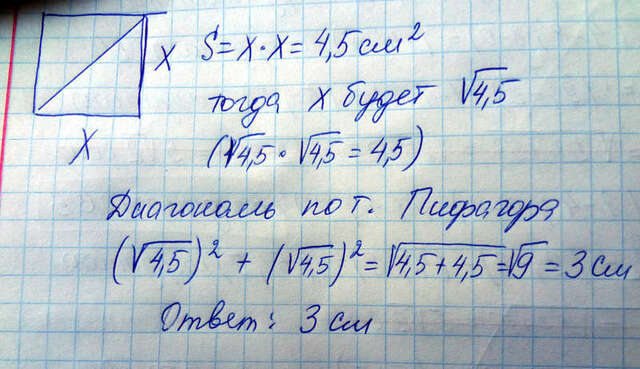 X S = X · X = 4,5 см²
тогда X будет √4,5
X (√4,5 · √4,5 = 4,5)
Диагональ по т. Пифагора
(√4,5)² + (√4,5)² = √4,5+4,5 = √9 = 3 см
Ответ: 3 см